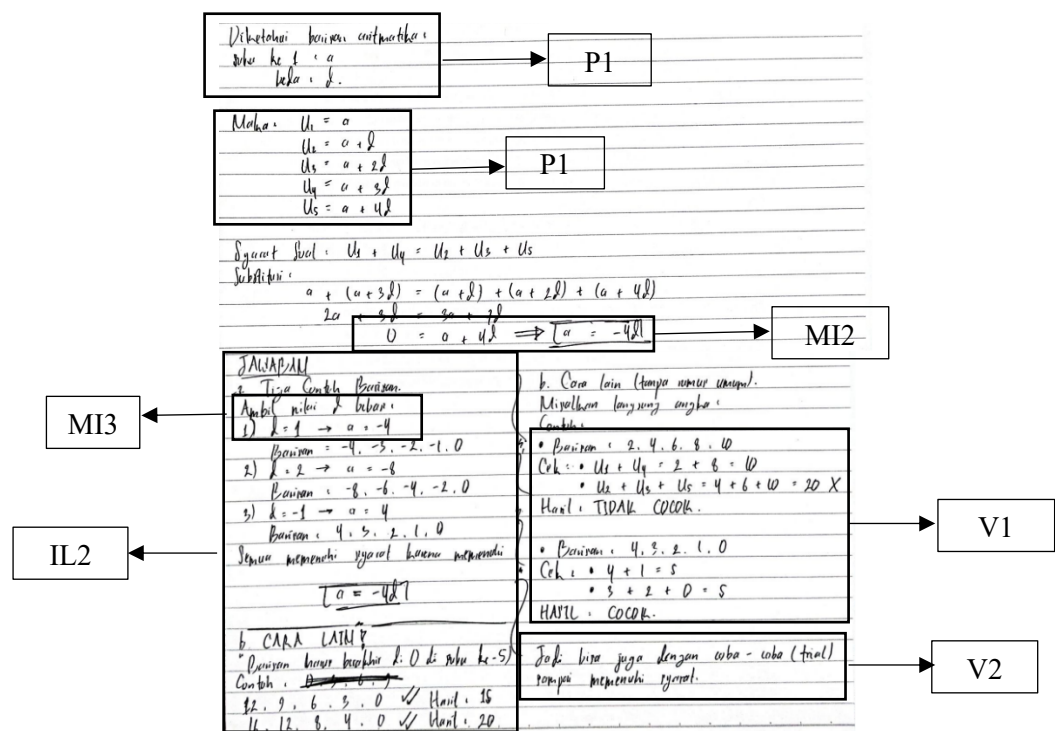 Diketahui barisan aritmatika:
suku ke 1 : a
beda : d.
P1
Maka: U1 = a
U2 = a + d
U3 = a + 2d
U4 = a + 3d
U5 = a + 4d
P1
Syarat Soal : U1 + U4 = U2 + U3 + U5
Substitusi:
a + (a+3d) = (a+d) + (a+2d) + (a+4d)
2a + 3d = 3a + 7d
0 = a + 4d ⟹ a = -4d
MI2
JAWABAN
a. Tiga Contoh Barisan.
Ambil nilai d bebas:
1) d = 1 → a = -4
MI3
Barisan = -4, -3, -2, -1, 0
2) d = 2 → a = -8
Barisan = -8, -6, -4, -2, 0
3) d = -1 → a = 4
Barisan : 4, 3, 2, 1, 0
Semua memenuhi syarat karena memenuhi
IL2
a = -4d
b CARA LAIN?
*Barisan harus berakhir di 0 di suku ke-5)
Contoh : 0 3, 6, 9
12, 9, 6, 3, 0 ✓ Hasil : 15
16, 12, 8, 4, 0 ✓ Hasil : 20
b. Cara lain (tanpa rumus umum).
Misalkan langsung angka:
Contoh:
• Barisan : 2, 4, 6, 8, 10
Cek : • U1 + U4 = 2 + 8 = 10
• U2 + U3 + U5 = 4 + 6 + 10 = 20 X
Hasil : TIDAK COCOK.
V1
• Barisan : 4, 3, 2, 1, 0
Cek : • 4 + 1 = 5
• 3 + 2 + 0 = 5
HASIL : COCOK.
Jadi bisa juga dengan coba-coba (trial)
sampai memenuhi syarat.
V2